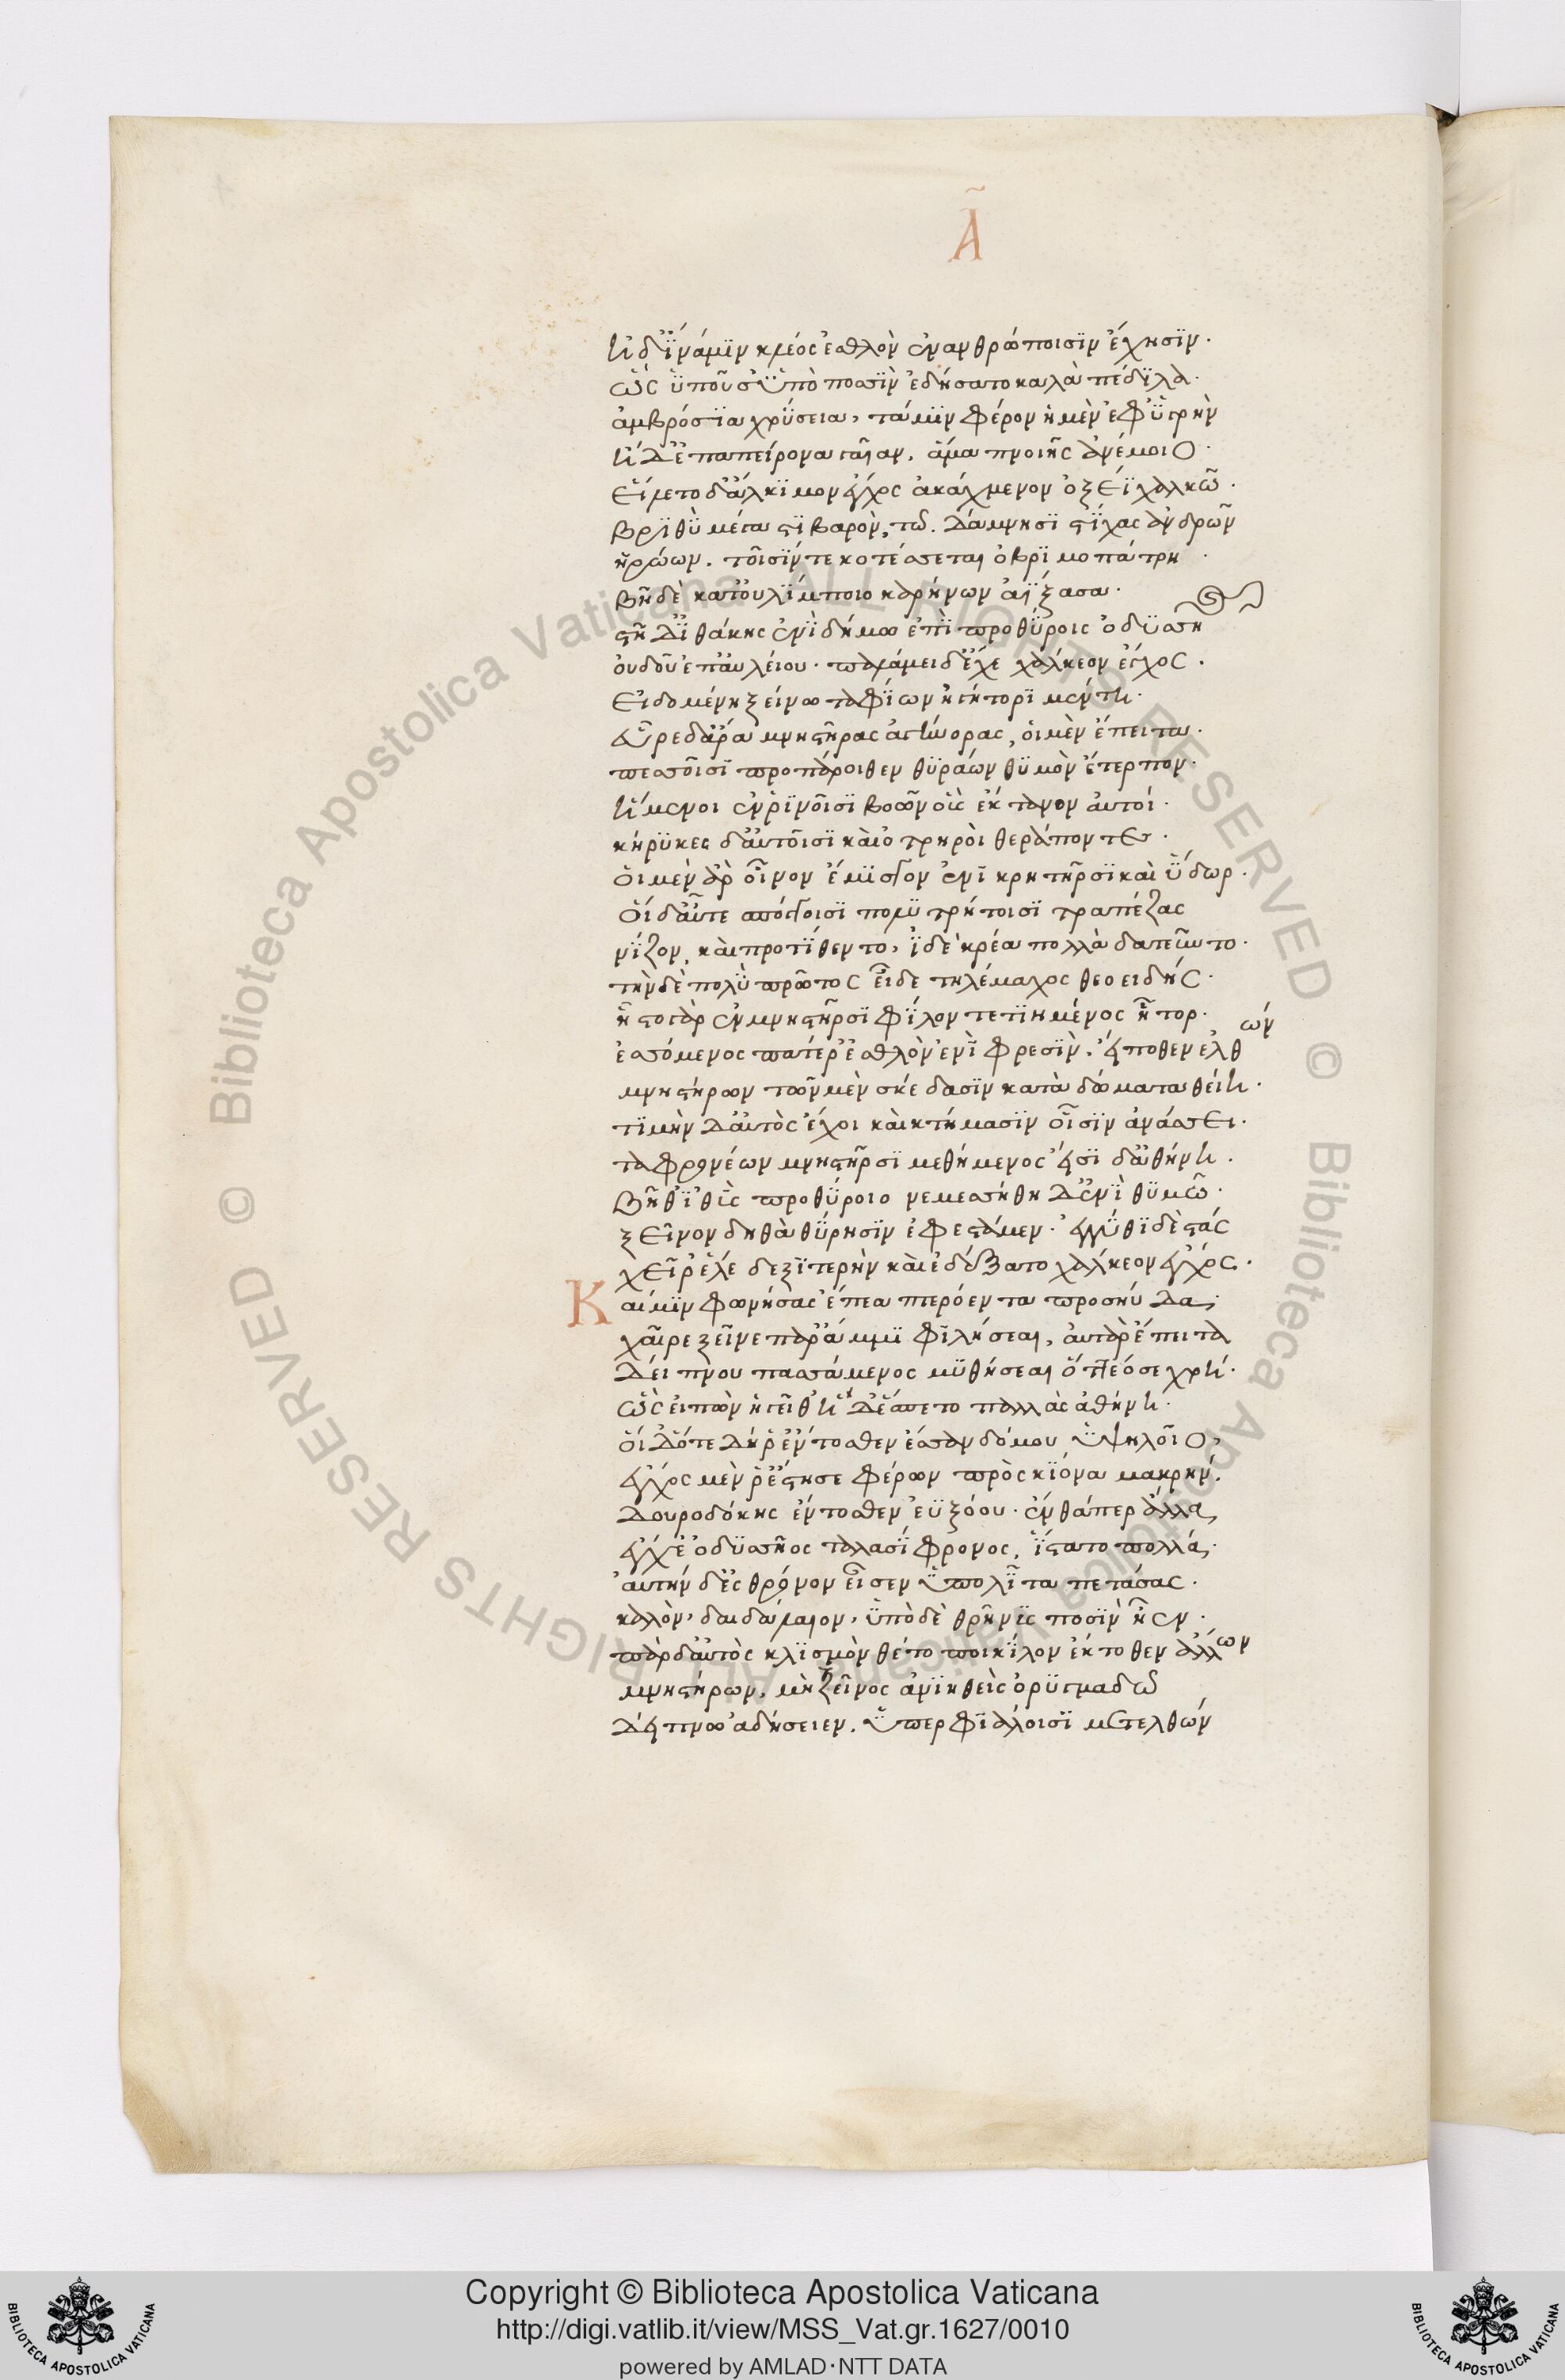 Α
ἠδ' ἵνά μιν κλέος ἐσθλὸν ἐν ἀνθρώποισιν ἔχησιν·
ὣς εἰποῦσ' ὑπὸ ποσσὶν ἐδήσατο καλὰ πέδιλα·
ἀμβρόσια χρύσεια, τά μιν φέρον ἠμὲν ἐφ' ὑγρὴν
ἠδ' ἐπ' ἀπείρονα γαῖαν, ἅμα πνοιῇς ἀνέμοιο·
εἵλετο δ' ἄλκιμον ἔγχος ἀκάχμενον ὀξέϊ χαλκῷ·
βριθὺ μέγα στιβαρὸν, τῷ δάμνησι στίχας ἀνδρῶν
ἡρώων, τοῖσίν τε κοτέσσεται ὀβριμοπάτρη·
βῆ δὲ κατ' οὐλύμποιο καρήνων ἀΐξασα·
στῆ δ' ἰθάκης ἐνὶ δήμῳ ἐπὶ προθύροις ὀδυσσῆος
οὐδοῦ ἐπ' αὐλείου· παλάμῃ δ' ἔχε χάλκεον ἔγχος·
εἰδομένη ξείνῳ ταφίων ἡγήτορι μέντῃ·
εὗρε δ' ἄρα μνηστῆρας ἀγήνορας, οἱ μὲν ἔπειτα·
πεσσοῖσι προπάροιθεν θυράων θυμὸν ἔτερπον·
ἥμενοι ἐν ῥινοῖσι βοῶν οὓς ἔκτανον αὐτοί·
κήρυκες δ' αὐτοῖσι καὶ ὀτρηροὶ θεράποντες·
οἱ μὲν ἂρ οἶνον ἔμισγον ἐνὶ κρητῆρσι καὶ ὕδωρ·
οἱ δ' αὖτε σπόγγοισι πολυτρήτοισι τραπέζας
νίζον, καὶ προτίθεντο, ἰδὲ κρέα πολλὰ δατεῦντο·
τὴν δὲ πολὺ πρῶτος εἶδε τηλέμαχος θεοειδής·
ἧστο γὰρ ἐν μνηστῆρσι φίλον τετιημένος ἦτορ·
ἐσσόμενος πατέρ' ἐσθλὸν ἐνὶ φρεσὶν· εἴ ποθεν ἐλθών
μνηστήρων τῶν μὲν σκέδασιν κατὰ δώματα θείη·
τιμὴν δ' αὐτὸς ἔχοι καὶ κτήμασιν οἷσιν ἀνάσσει·
τὰ φρονέων μνηστῆρσι μεθήμενος εἴσιδ' ἀθήνη·
βῆ δ' ἰθὺς προθύροιο νεμεσσήθη δ' ἐνὶ θυμῷ·
ξεῖνον δηθὰ θύρησιν ἐφεστάμεν· ἐγγύθι δὲ στάς
χεῖρ' ἕλε δεξιτερὴν καὶ ἐδέξατο χάλκεον ἔγχος·
Καί μιν φωνήσας ἔπεα πτερόεντα προσηύδα·
χαῖρε ξεῖνε παρ' ἄμμι φιλήσεαι, αὐτὰρ ἔπειτα
δείπνου πασσάμενος μυθήσεαι ὅττεό σε χρή·
ὣς εἰπὼν ἡγεῖθ' ἡ δ' ἕσπετο παλλὰς ἀθήνη·
οἱ δ' ὅτε δή ῥ' ἔντοσθεν ἔσαν δόμου ὑψηλοῖο,
ἔγχος μέν ῥ' ἔστησε φέρων πρὸς κίονα μακρήν·
δουροδόκης ἔντοσθεν ἐυξόου· ἔνθά περ ἄλλα
ἔγχε' ὀδυσσῆος ταλασίφρονος, ἵστατο πολλά·
αὐτήν δ' ἐς θρόνον εἷσεν ὑπὸ λῖτα πετάσας·
καλὸν, δαιδάλεον, ὑπὸ δὲ θρῆνυς ποσὶν ἦεν·
πὰρ δ' αὐτὸς κλισμὸν θέτο ποικίλον ἔκτοθεν ἄλλων
μνηστήρων, μὴ ξεῖνος ἀνιηθεὶς ὀρυγμαδῷ
δείπνῳ ἀδήσειεν, ὑπερφιάλοισι μετελθών
Copyright © Biblioteca Apostolica Vaticana
http://digi.vatlib.it/view/MSS_Vat.gr.1627/0010
powered by AMLAD·NTT DATA
BIBLIOTECA APOSTOLICA VATICANA
BIBLIOTECA APOSTOLICA VATICANA
© Biblioteca Apostolica Vaticana ALL RIGHTS RESERVED
© Biblioteca Apostolica Vaticana ALL RIGHTS RESERVED